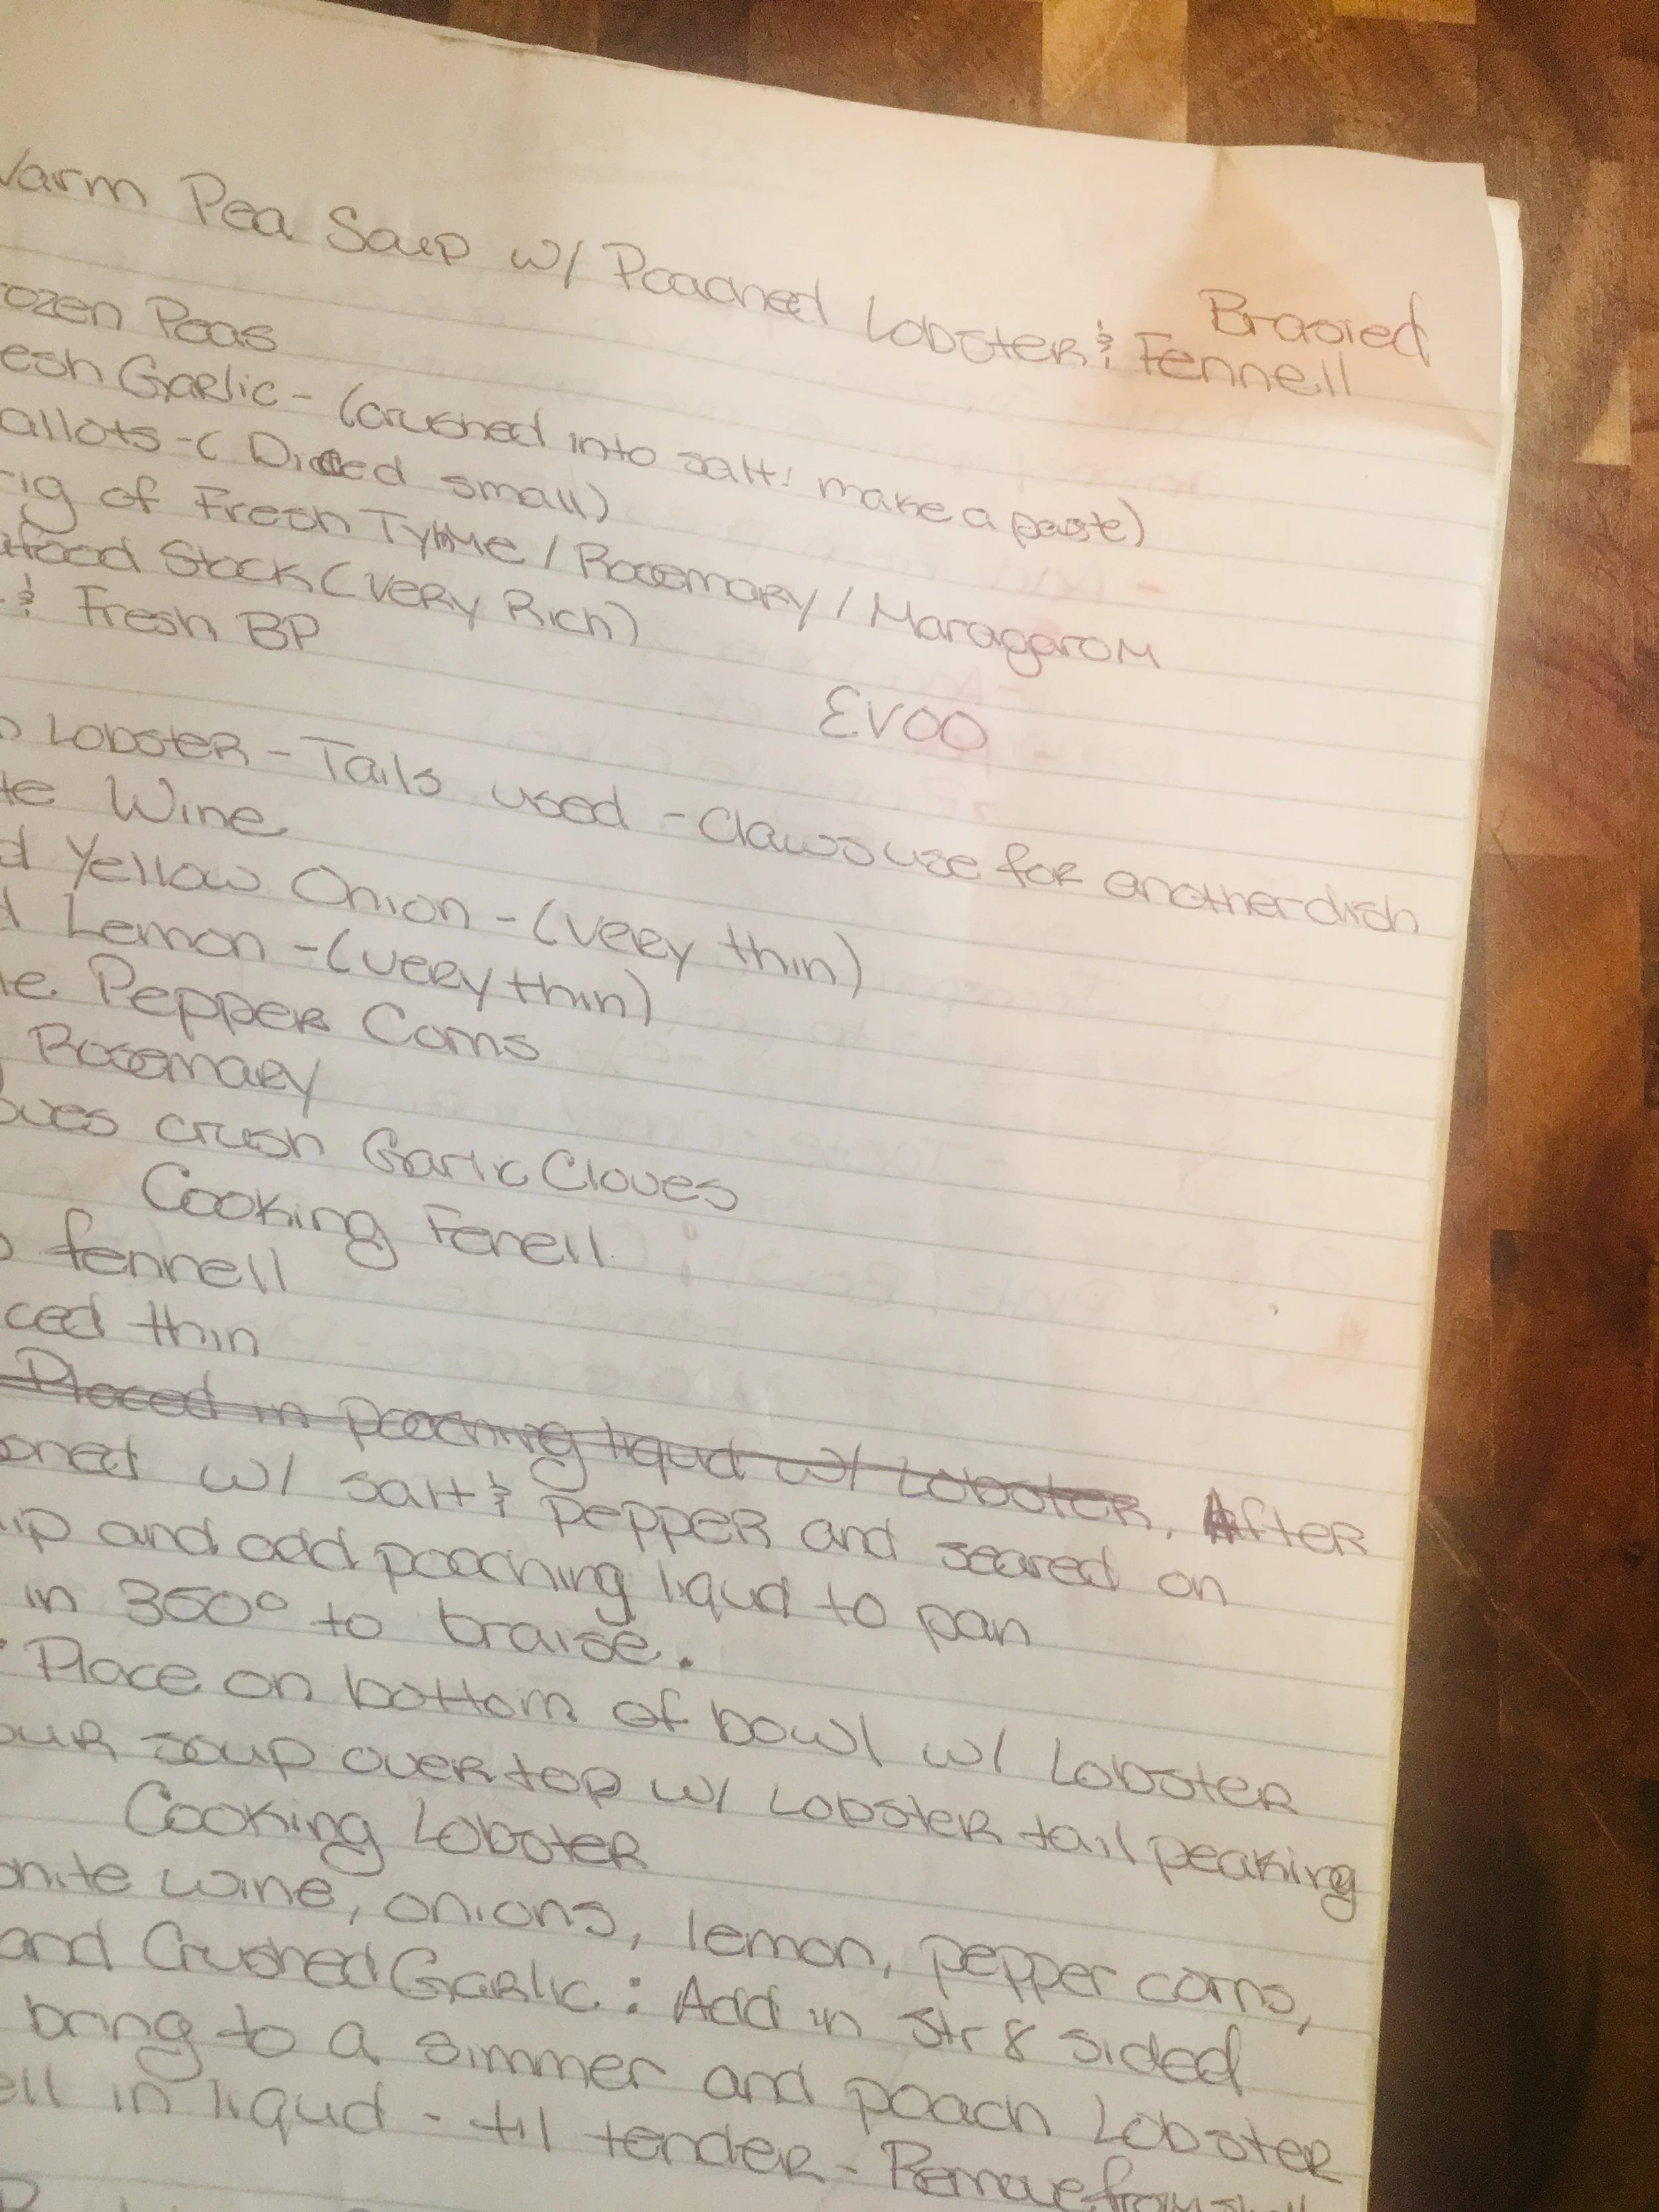 Warm Pea Soup w/ Poached Lobster & Brasied Fennell
ozen Peas
esh Garlic - (crushed into salt: make a paste)
allots - (Diced small)
rig of Fresh Tyhme / Rosemary / Maragarom
afood Stock (Very Rich)
& Fresh BP
EVOO
Lobster - Tails used - Claws use for another dish
te Wine
d Yellow Onion - (very thin)
d Lemon - (very thin)
le Pepper Corns
Rosemary
oves crush Garlic Cloves
Cooking Fenell
fennell
ced thin
Placed in poaching liqud w/ Lobster, After
oned w/ salt & pepper and seared on
up and add poaching liqud to pan
in 350° to braise.
: Place on bottom of bowl w/ Lobster
our soup over top w/ Lobster tail peaking
Cooking Lobster
hite wine, onions, lemon, pepper corns,
and Crushed Garlic : Add in Str8 sided
bring to a simmer and poach Lobster
ell in liqud - til tender - Remove from shell